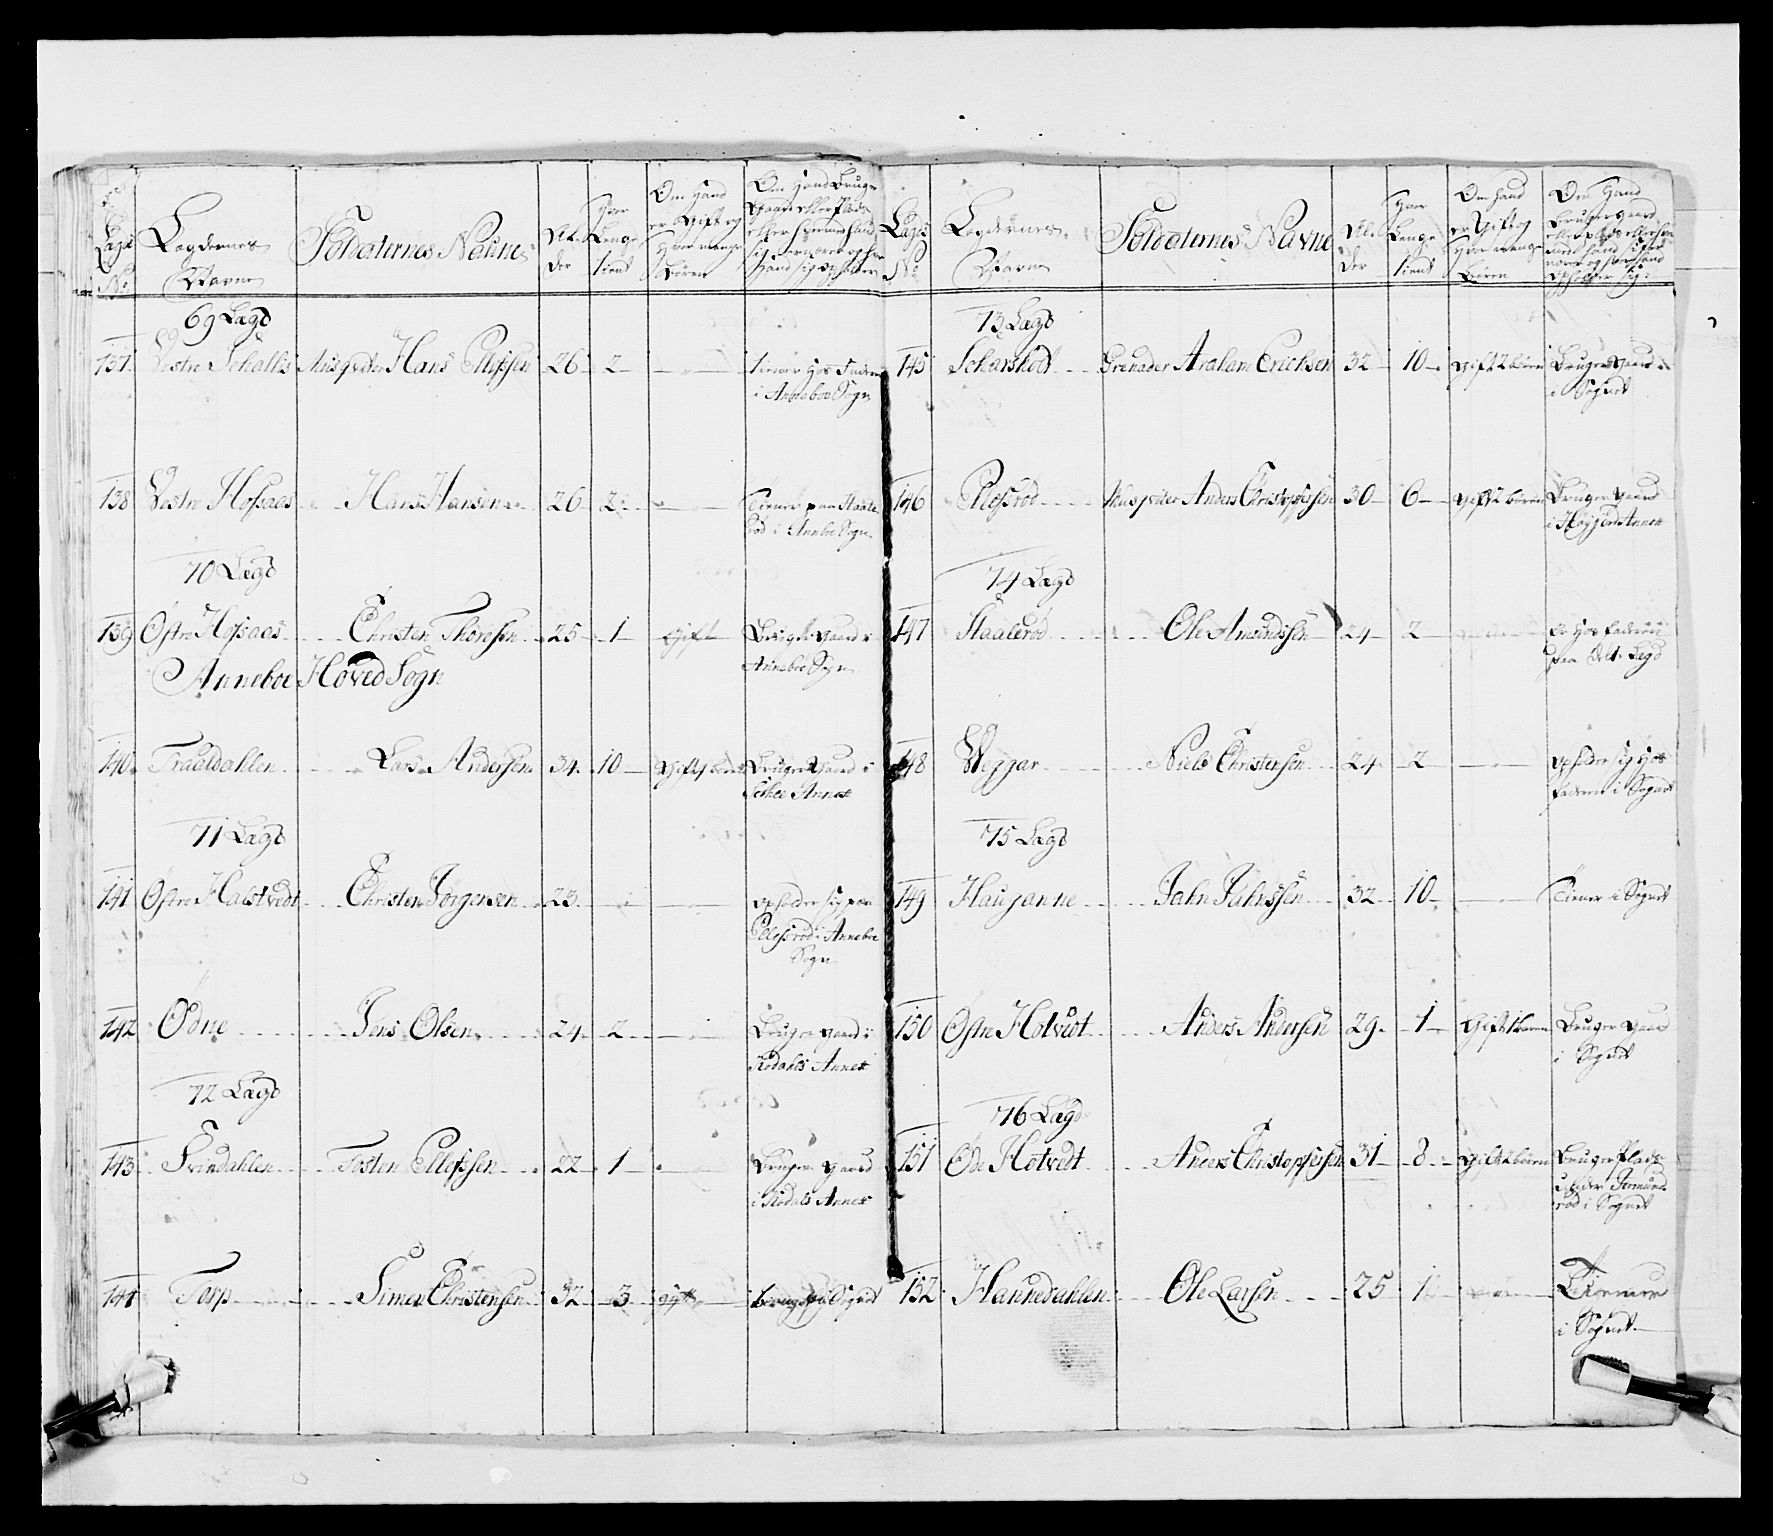 Lægs No.
Legdernes Navne
Soldaternes Navne
Al. der
Hvor Længe tient
Om Hand er Gift og Hvor mange Børen
Om Hand Bruger Gaard eller Plads
69 Lægd
137 Vestre Schallis Musqveter Hans Ellefssen 26 2 tiener hos Faderen
i Anneboe Sogn
138 Vestre Hofsaas Hans Hansen 26 2 Tiener paa Haale
rød i Anneboe Sogn
70 Lægd
139 Østre Hofsaas Christen Thoresen 25 1 Gift Bruger Gaard i
Anneboe Sogn
Anneboe Hoved Sogn
140 Traaldahlen Lars Andersen 34 10 Gift Bruger Gaard i
Annex
71 Lægd
141 Østre Halstvedt Christen Jørgensen 23 opholder sig paa
Ellefsrød i Anneboe
Sogn
142 Odne Jens Olsen 24 2 Bruger Gaard i
Rodahls Annex
72 Lægd
143 Svindahlen Tosten Ellefssen 22 1 Bruger Gaard
i Rodals Annex
144 Torp Simen Christensen 32 3 gift Sognet
Lægs No.
Legdernes Navne
Soldaternes Navne
Al. der
Hvor Længe tient
Om Hand er Gift og Hvor mange Børen
Om Hand Bruger Gaard
73 Lægd
145 Scharshod Grenader Araham Erichsen 32 10 Gift 2 børen Bruger Gaard
i Sognet
146 Ellefsrød Musqveter Anders Christophersen 30 6 Gift 2 børen Bruger Gaard
i Annex
74 Lægd
147 Haalerød Ole Amundssen 24 2 Er hos faderen
paa Lægd
148 Weggar Niels Christensen 24 2 opholder sig hos
faderen i Sognet
75 Lægd
149 Hauganne Jahn Jahnssen 32 10 Tiener i Sognet
150 Østre Holvedt Anders Andersen 29 1 Gift 1 barn Bruger Gaard
i Sognet
76 Lægd
151 Øde Hotvedt Anders Christophersen 31 8 Gift 2 børen Bruger Plads
under
rød i Sognet
152 Hannedahlen Ole Larsen 25 1 Tiener
i Sognet